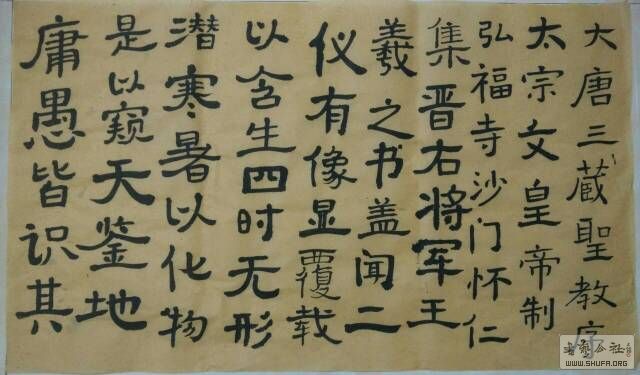 大唐三藏聖教序
太宗文皇帝制
弘福寺沙门怀仁
集晋右将军王
羲之书盖闻二
仪有像显覆载
以含生四时无形
潜寒暑以化物
是以窥天鉴地
庸愚皆识其
公社
WWW.SHUFA.ORG